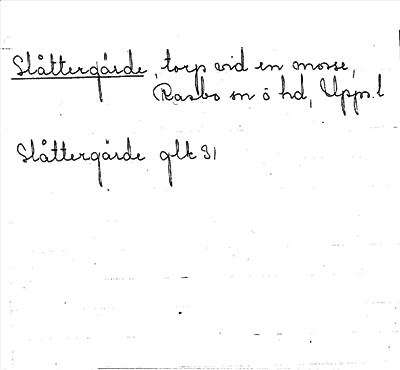 Slåttergärde, torp vid en mosse,
Rasbo sn o hd, Upps. l
Slåttergärde glk 31